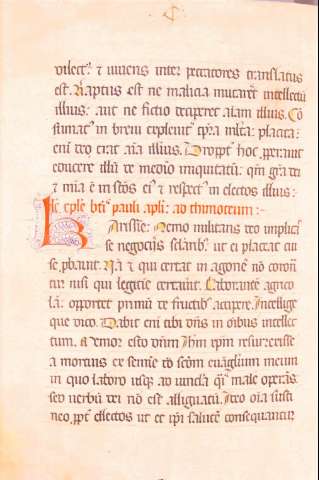 dilect᷒ ⁊ viuens inter peccatores translatus
est. Raptus est ne malicia mutaret intellectū
illius: aut ne fictio deciperet aīam illius. Cō
sumat᷒ in breui expleuit tp̄ra mīta: placita
enī deo erat aīa illius. Propt̄ hoc pperauit
educere illū de medio iniquitatū: qm̄ grā dei
⁊ mīa ē in sc̄os ei᷒ ⁊ respect᷒ in electos illius:
lc̄ ep̄le bt̄i pauli apl̄i: ad thimoteum:
Karissīe: Nemo militans deo implicat
se negociis sclarib᷒: ut ei placeat cui
se ꝓbauit. Nā ⁊ qui certat in agone nō coron̄
tur nisi qui legitīe certauit. Laborantē agrico
lā: oportet primū de fructib᷒ accipere. Intellige
que dico. Dabit enī tibi dn̄s in oībus intellec
tum. Memor esto dn̄m Ihm xp̄m resurrexisse
a mortuis ex semīe dd scdm euāgliū meum
in quo laboro usq; ad uincla q̄si male operās:
sed uerbū dei nō est alligatū. Ideo oīa susti
neo ꝓpt̄ electos ut et ip̄i salutē consequantur